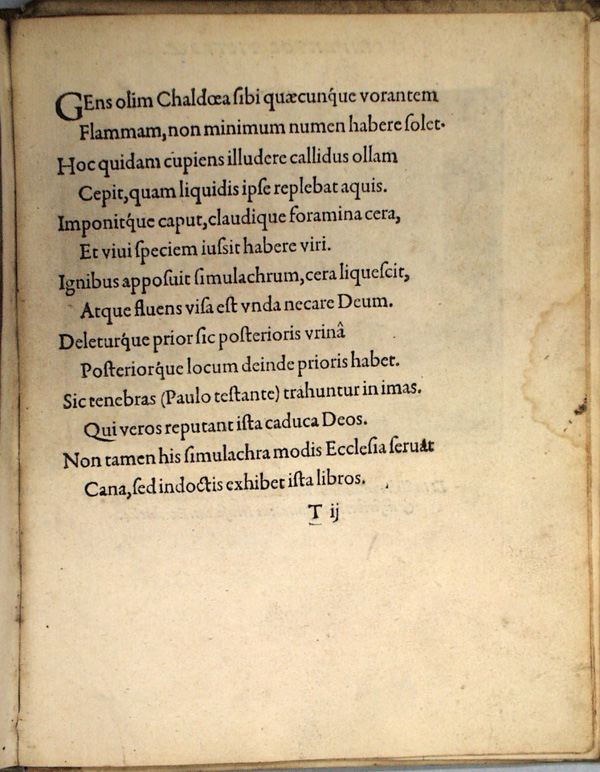 GEns olim Chaldœa sibi quæcunq́ue vorantem
Flammam, non minimum numen habere solet.
Hoc quidam cupiens illudere callidus ollam
Cepit, quam liquidis ipse replebat aquis.
Imponitq́ue caput, claudique foramina cera,
Et viui speciem iussit habere viri.
Ignibus apposuit simulachrum, cera liquescit,
Atque fluens visa est vnda necare Deum.
Deleturq́ue prior sic posterioris vrinâ
Posteriorq́ue locum deinde prioris habet.
Sic tenebras (Paulo testante) trahuntur in imas.
Qui veros reputant ista caduca Deos.
Non tamen his simulachra modis Ecclesia seruat
Cana, sed indoctis exhibet ista libros.
T ij